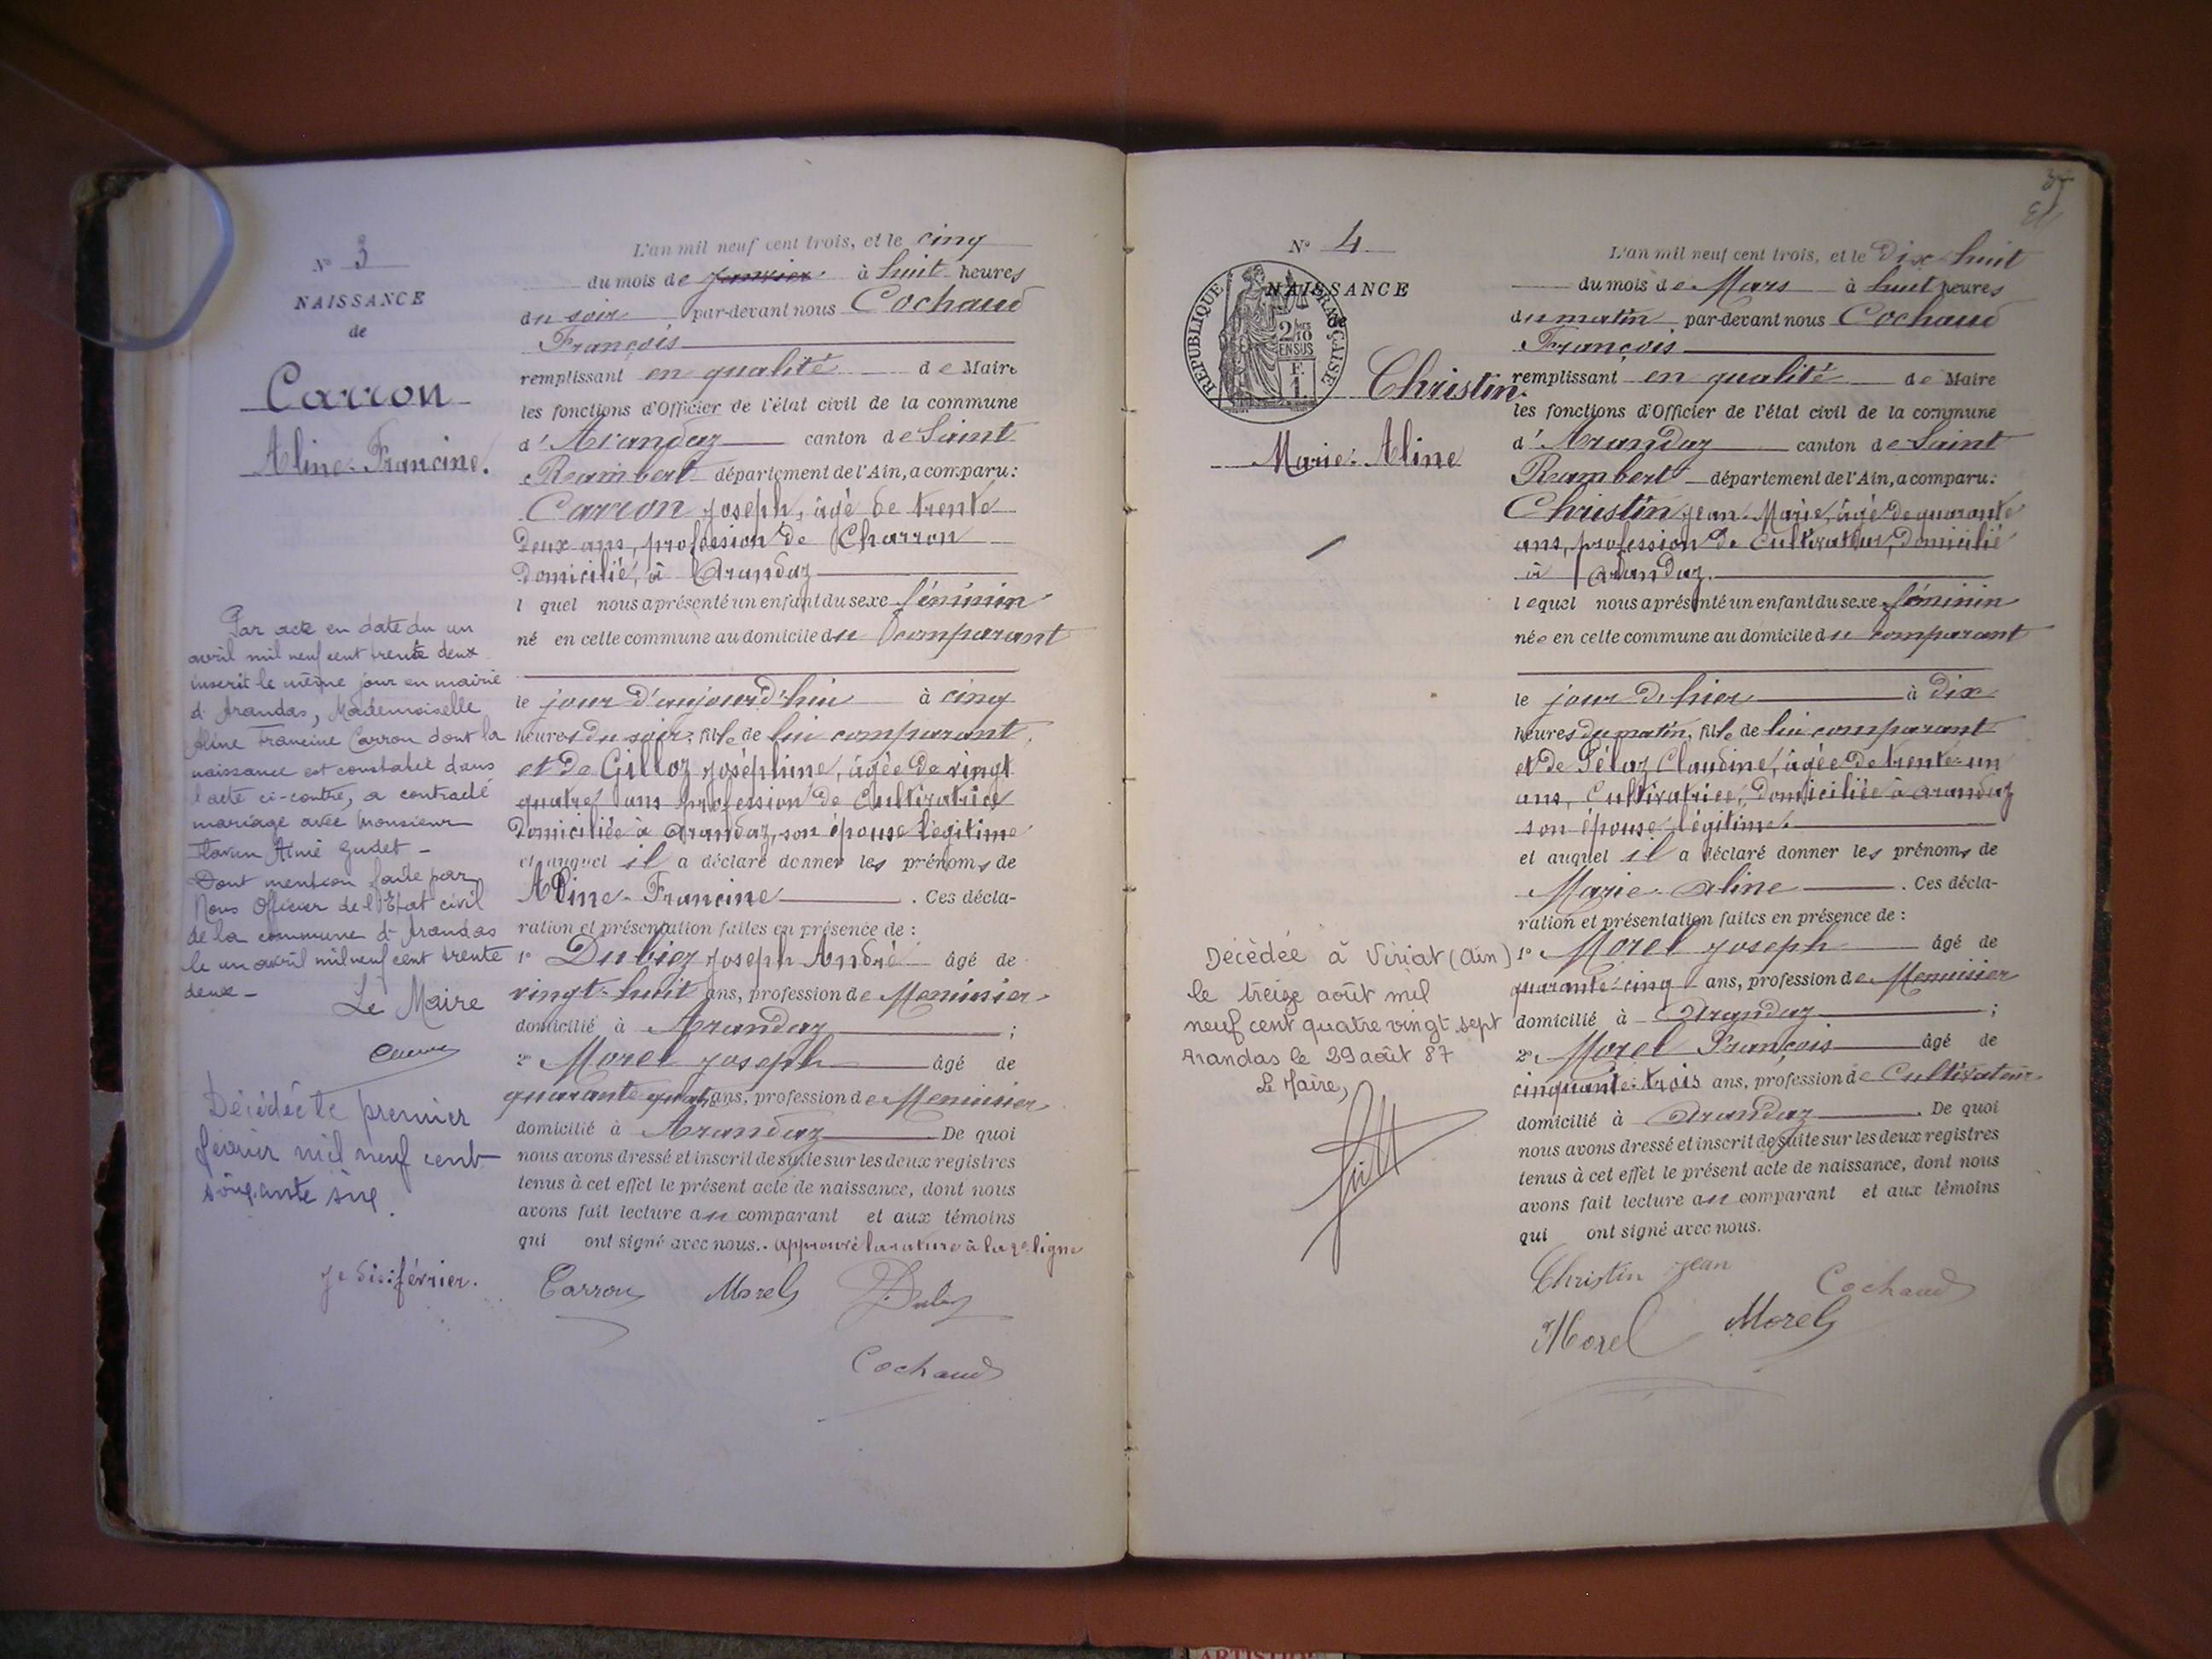 N° 3
NAISSANCE
de
Carron
Aline-Francine.
Par acte en date du un
avril mil neuf cent trente deux
inscrit le même jour en mairie
d'Arandas, Mademoiselle
Aline Francine Carron dont la
naissance est constatée dans
l'acte ci-contre, a contracté
mariage avec Monsieur
Aimé Gudet -
Dont mention faite par
Nous Officier de l'Etat civil
de la commune d'Arandas
le un avril mil neuf cent trente
deux -
Le Maire
Décédée le premier
février mil neuf cent
soixante six.
Je dis: février.
L'an mil neuf cent trois, et le cinq
du mois de Janvier à huit heures
du soir par-devant nous Cochaud
François
remplissant en qualité de Maire
les fonctions d'Officier de l'état civil de la commune
d'Arandaz canton de Saint
Rambert département de l'Ain, a comparu:
Carron Joseph, âgé de trente
deux ans, profession de Charron
domicilié, à Arandaz
l quel nous a présenté un enfant du sexe féminin
né en cette commune au domicile du comparant
le jour d'aujourd'hui à cinq
heures du soir, fille de lui comparant,
et de Gilloz Joséphine, âgée de vingt
quatre ans profession de Cultivatrice
domiciliée à Arandaz, son épouse légitime
et auquel il a déclaré donner les prénoms de
Aline-Francine. Ces décla-
ration et présentation faites en présence de :
1° Dubiez Joseph André âgé de
vingt-huit ans, profession de Menuisier
domicilié à Arandaz ;
2° Morel Joseph âgé de
quarante quatre ans, profession de Menuisier
domicilié à Arandaz De quoi
nous avons dressé et inscrit de suite sur les deux registres
tenus à cet effet le présent acte de naissance, dont nous
avons fait lecture au comparant et aux témoins
qui ont signé avec nous. approuvé la rature à la 2e ligne
Carron Morel
Cochaud
N° 4
NAISSANCE
de
REPUBLIQUE FRANÇAISE
Christin
Marie-Aline
Décédée à Viriat (Ain)
le treize août mil
neuf cent quatre vingt sept
Arandas le 29 août 87
Le Maire,
L'an mil neuf cent trois, et le dix-huit
du mois de Mars à huit heures
du matin par-devant nous Cochaud
François
remplissant en qualité de Maire
les fonctions d'Officier de l'état civil de la commune
d'Arandaz canton de Saint
Rambert département de l'Ain, a comparu:
Christin Jean-Marie, âgé de quarante
ans, profession de Cultivateur, domicilié
à Arandaz.
lequel nous a présenté un enfant du sexe féminin
née en cette commune au domicile du comparant
le jour de hier à dix
heures du matin, fille de lui comparant
et de Pélaz Claudine, âgée de trente-un
ans, Cultivatrice, domiciliée à Arandaz
son épouse légitime.
et auquel il a déclaré donner les prénoms de
Marie-Aline. Ces décla-
ration et présentation faites en présence de :
1° Morel Joseph âgé de
quarante-cinq ans, profession de Menuisier
domicilié à Arandaz ;
2° Morel François âgé de
cinquante-trois ans, profession de Cultivateur
domicilié à Arandaz. De quoi
nous avons dressé et inscrit de suite sur les deux registres
tenus à cet effet le présent acte de naissance, dont nous
avons fait lecture au comparant et aux témoins
qui ont signé avec nous.
Christin Jean
Cochaud
Morel
Morel